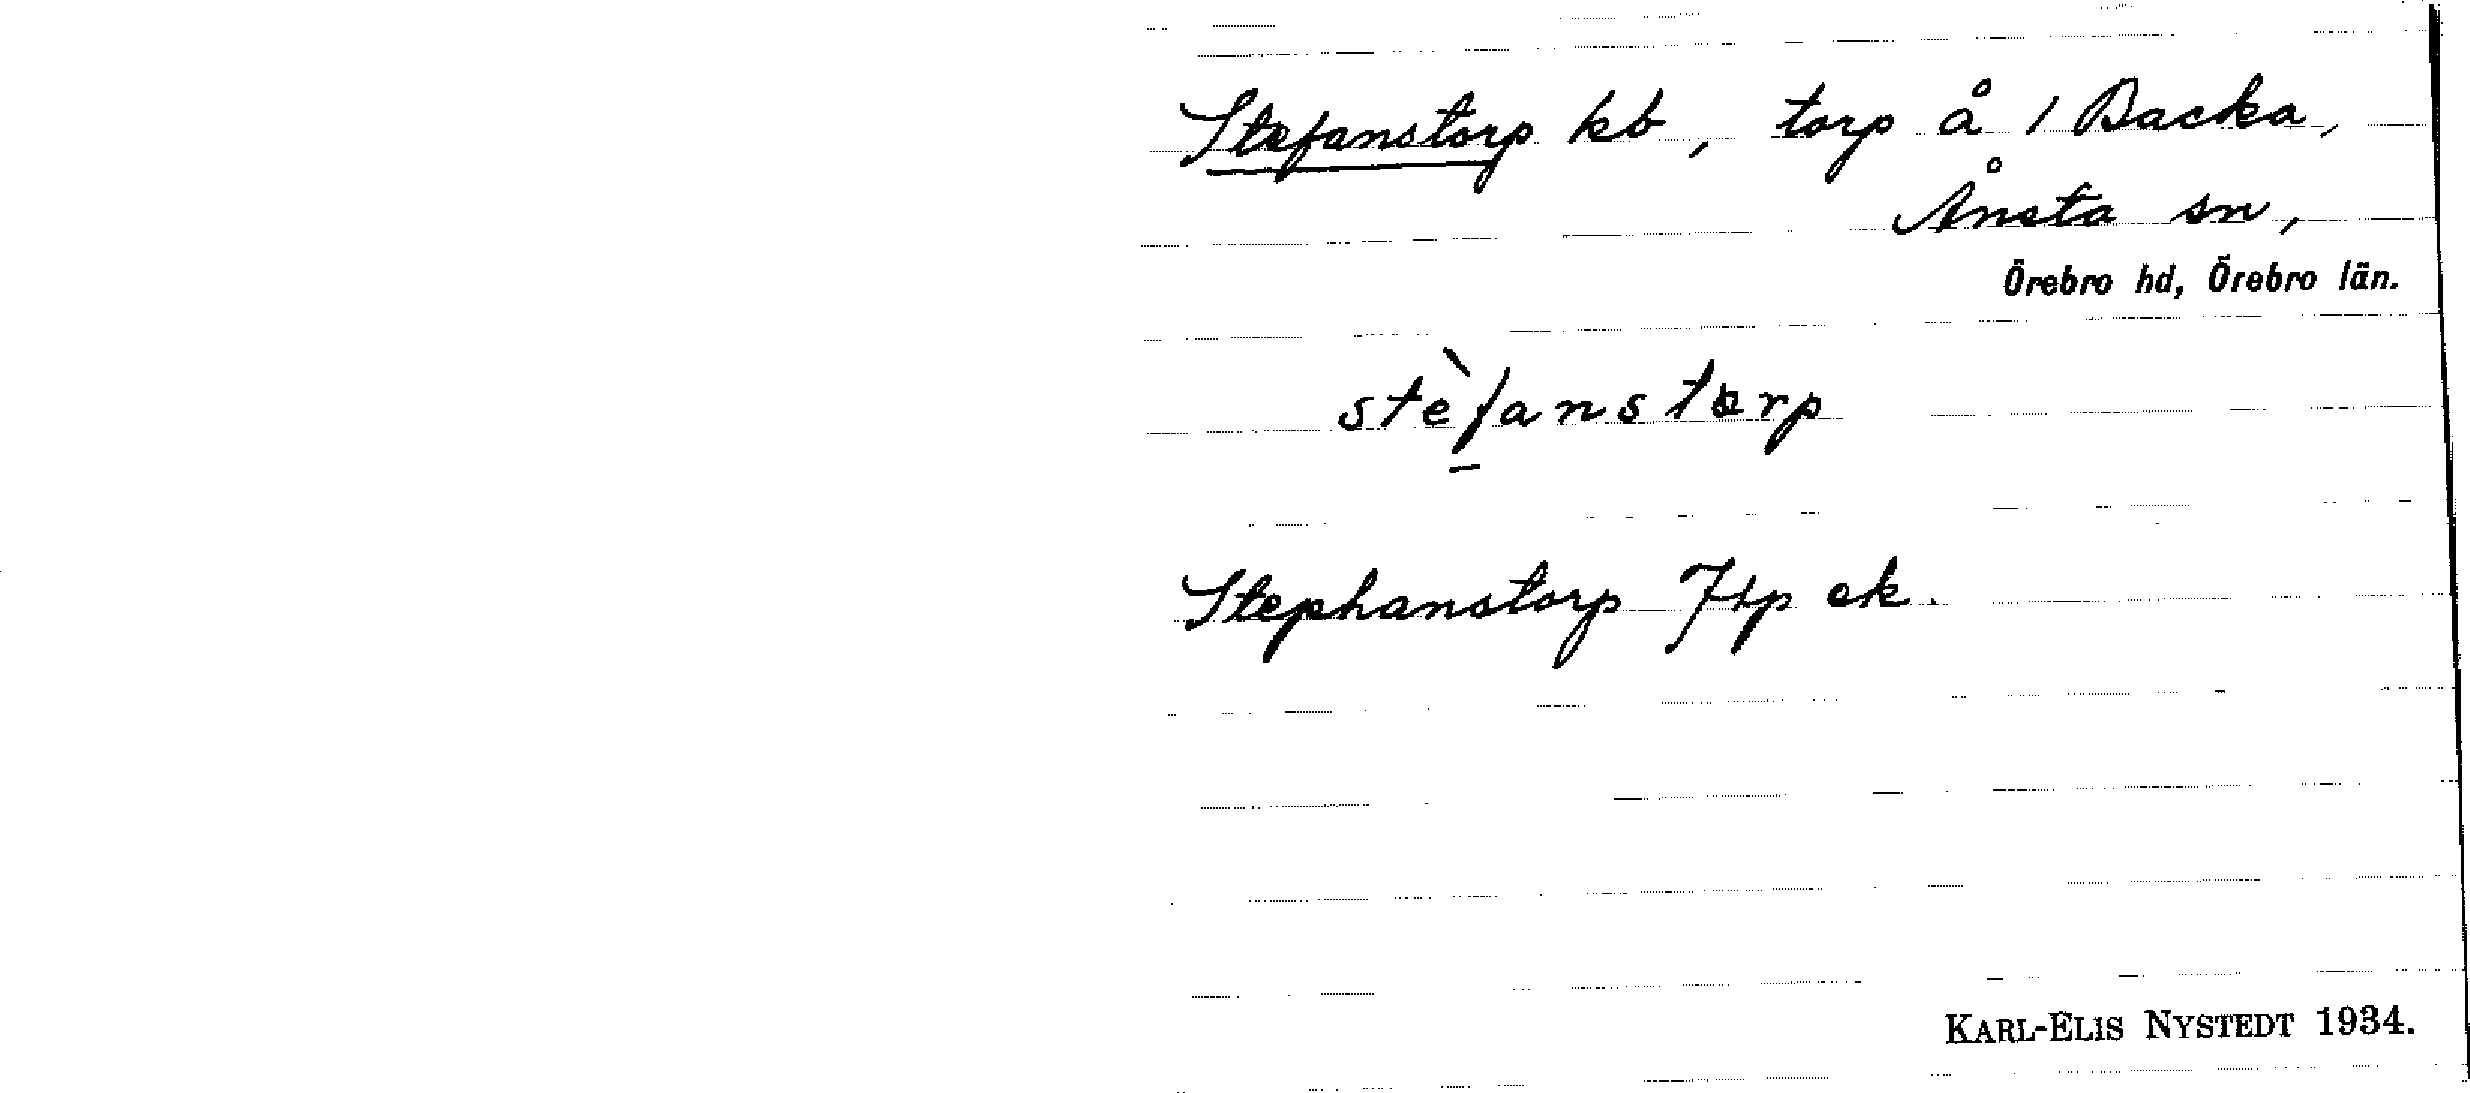 Stefanstorp kb, torp å 1 Backa,
Ånsta sn,
Örebro hd, Örebro län.
stèfanstorp
Stephanstorp Jtp ek.
KARL-ELIS NYSTEDT 1934.